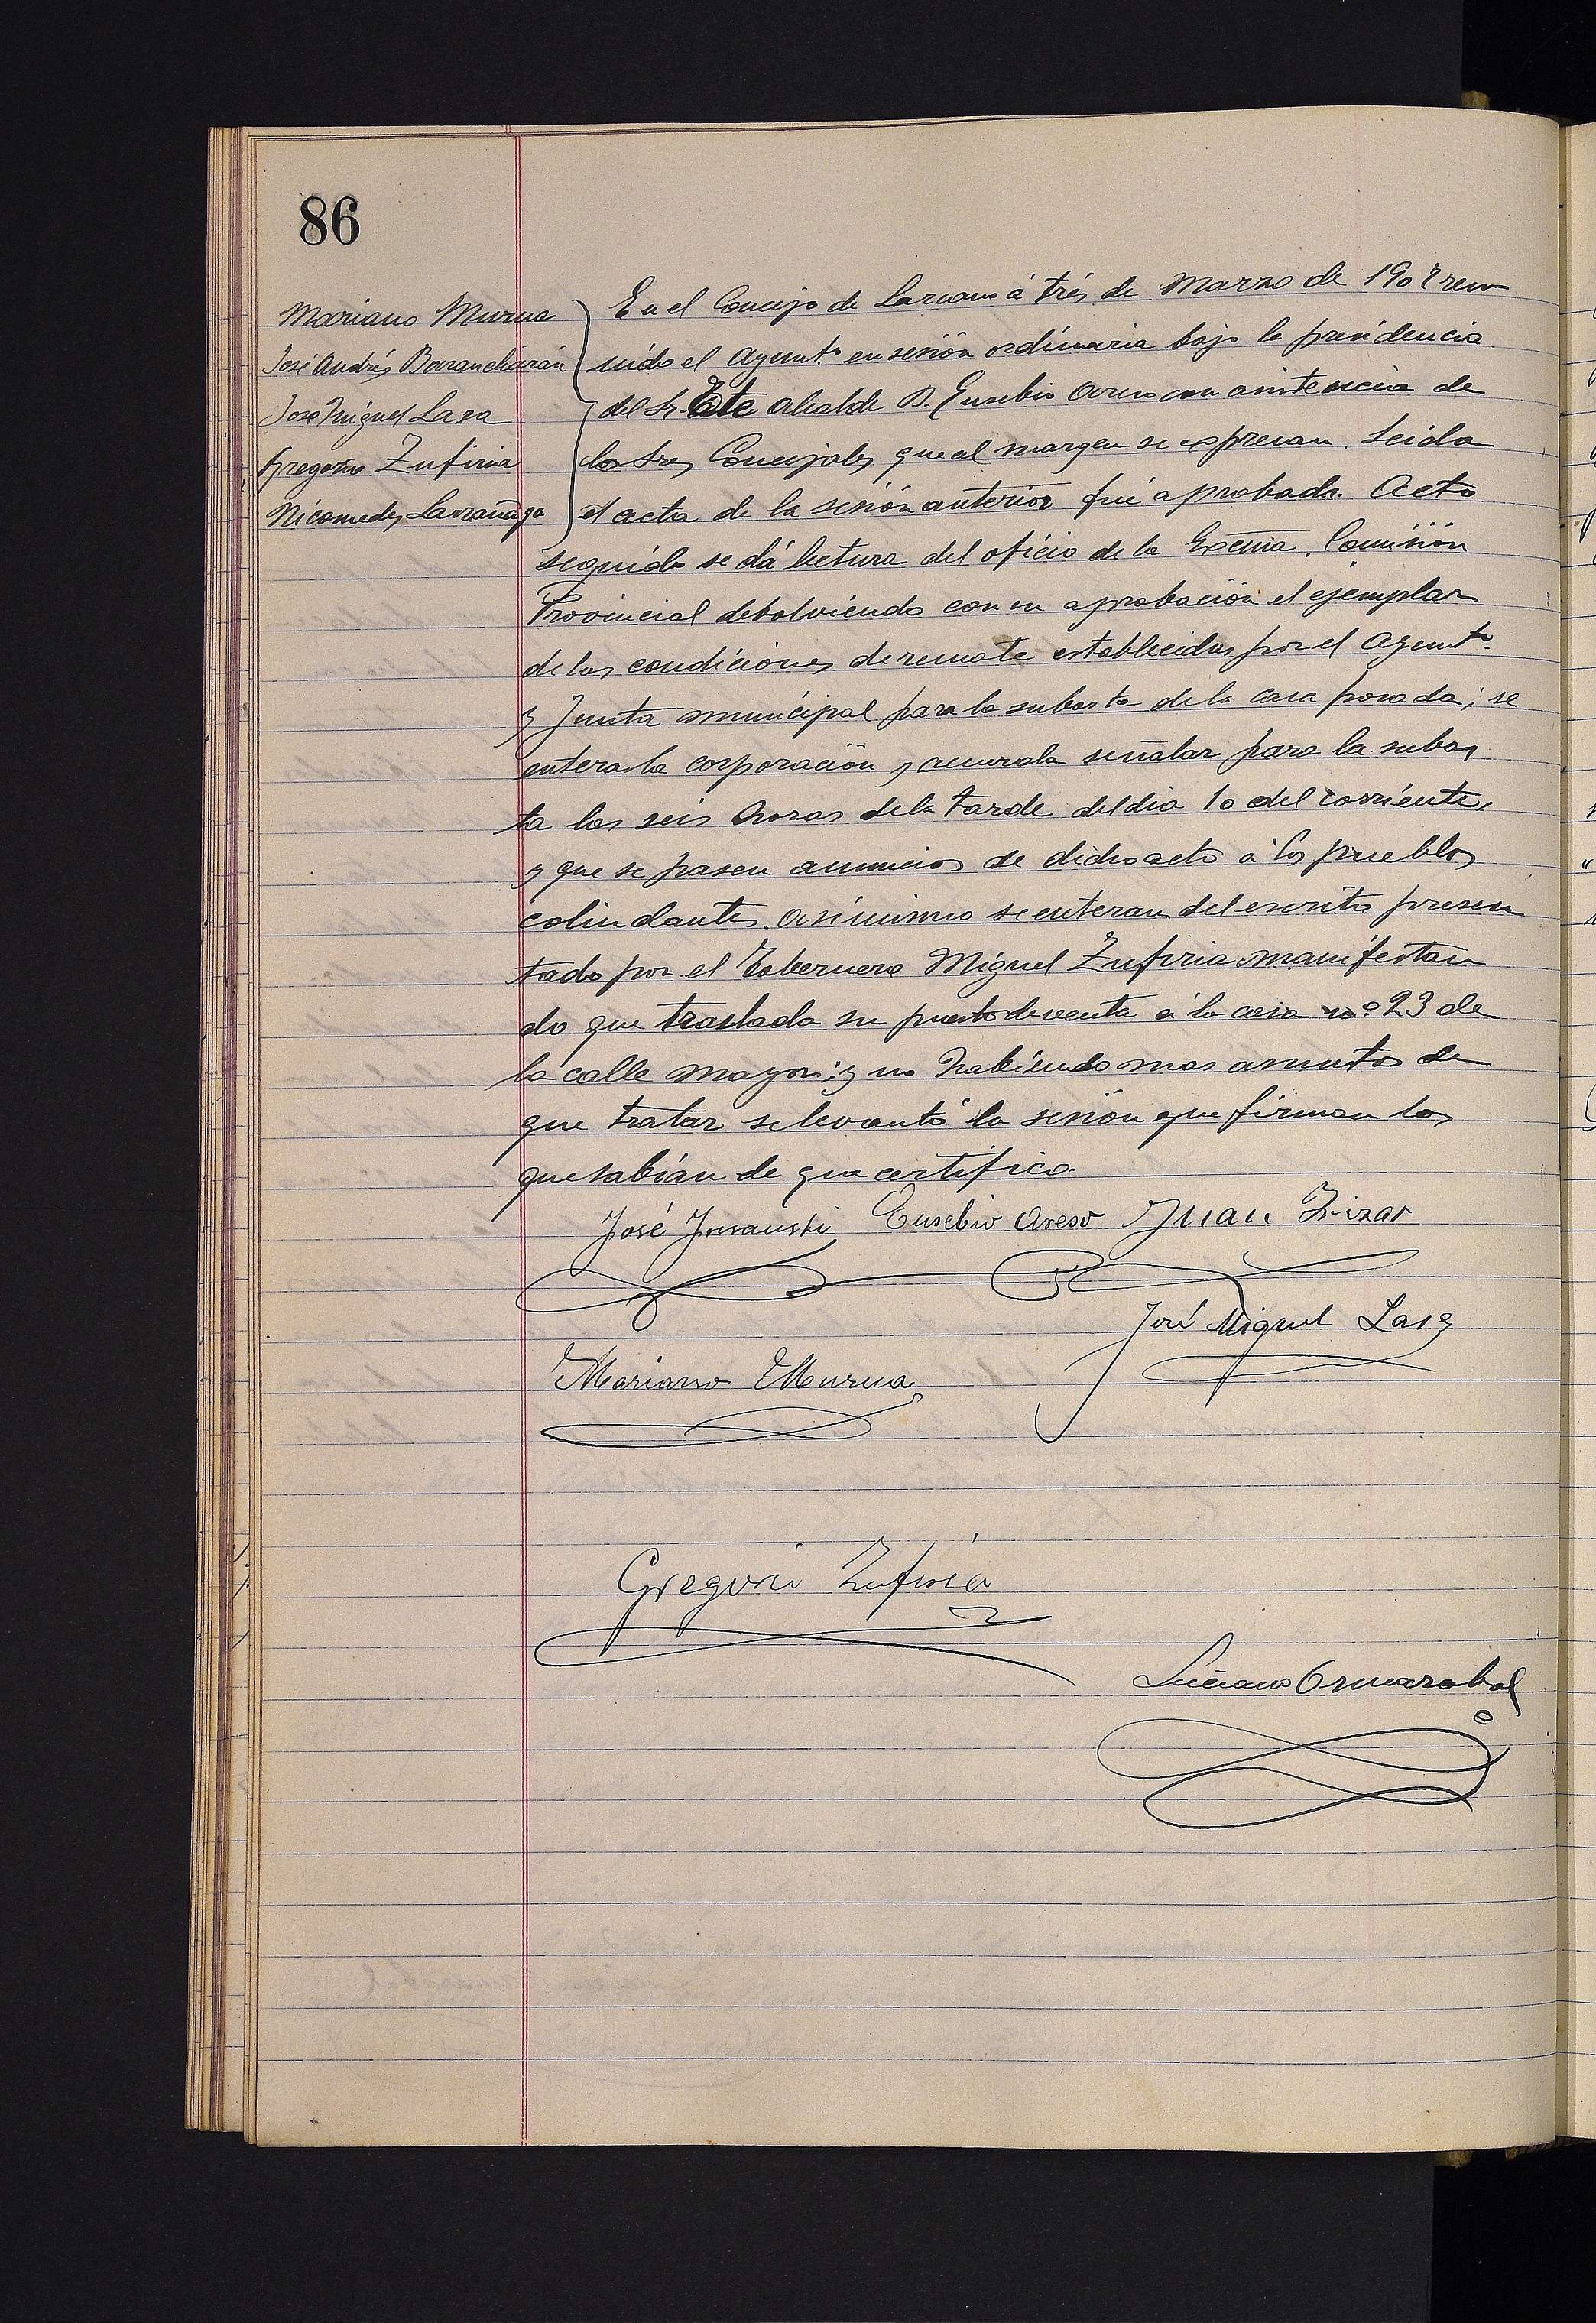 86
Mariano Murua
José Andrés Barrancharán
José Miguel Lasa
Gregorio Zufiria
Nicomedes Larrañaga
En el Concejo de Lazcano á trés de Marzo de 190 reu
nido el Ayunt.º en sesión ordinaria bajo la presidencia
del Sr. Tte Alcalde D. Eusebio Areso con asistencia de
los Sres Concejales que al margen se expresan. Leida
el acta de la sesión anterior fué aprobada. Acto
seguido se dá lectura del oficio de la Excma. Comisión
Provincial debolviendo con su aprobación el ejemplar
de las condiciones de remate establecidas por el Ayunt.º
y Junta municipal para la subasta de la casa posada; se
entera la corporación y acuerda señalar para la subas
ta las seis horas de la tarde del dia 10 del corriente,
y que se pasen anuncios de dicho acto á los pueblos
colindantes. Asimismo se enteran del escrito presen
tado por el Tabernero Miguel Zufiria manifestan
do que traslada su puesto de venta á la casa nº 23 de
la calle mayor; y no habiendo mas asuntos de
que tratar se levantó la sesión que firman los
que sabían de que certifico.
José Insausti Eusebio Areso Juan
José Miguel Lasa
Mariano Murua
Gregorio Zufiria
Luciano Ormazabal